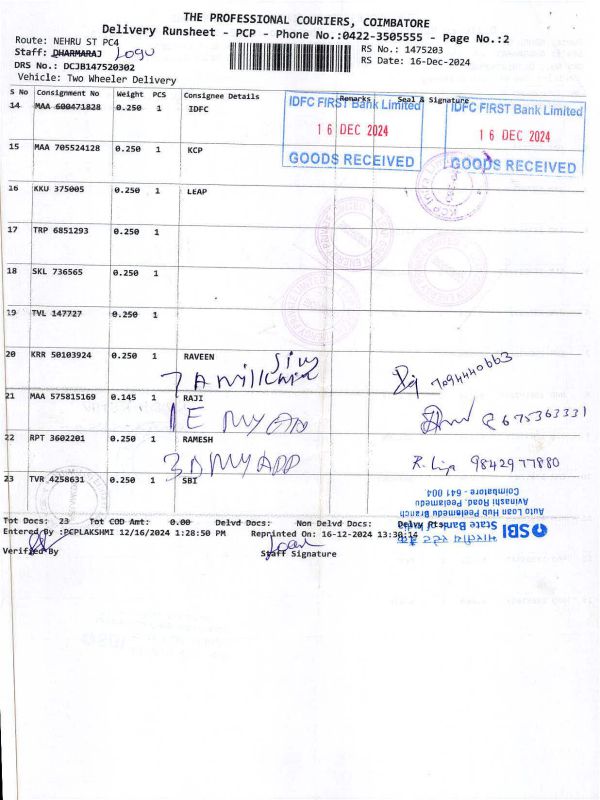 THE PROFESSIONAL COURIERS, COIMBATORE
Delivery Runsheet - PCP - Phone No.:0422-3505555 - Page No.:2
Route: NEHRU ST PC4
RS No.: 1475203
Staff: DHARMARAJ Logu
RS Date: 16-Dec-2024
DRS No.: DCJB147520302
Vehicle: Two Wheeler Delivery
S No Consignment No Weight PCS Consignee Details Remarks Seal & Signature
14 MAA 600471828 0.250 1 IDFC
IDFC FIRST Bank Limited
16 DEC 2024
GOODS RECEIVED
IDFC FIRST Bank Limited
16 DEC 2024
GOODS RECEIVED
15 MAA 705524128 0.250 1 KCP
16 KKU 375005 0.250 1 LEAP
17 TRP 6851293 0.250 1
18 SKL 736565 0.250 1
19 TVL 147727 0.250 1
20 KRR 50103924 0.250 1 RAVEEN
7094440663
21 MAA 575815169 0.145 1 RAJI
1E MY ADD
8675363331
22 RPT 3602201 0.250 1 RAMESH
3D MY ADD
9842977880
23 TVR 4258631 0.250 1 SBI
SBI
भारतीय स्टेट बैंक
State Bank of India
Auto Loan Hub Peelamedu Branch
Avinashi Road, Peelamedu
Coimbatore - 641 004
Tot Docs: 23 Tot COD Amt: 0.00 Delvd Docs: Non Delvd Docs: Delvy Rts:
Entered By :PCPLAKSHMI 12/16/2024 1:28:50 PM Reprinted On: 16-12-2024 13:30:14
Verified By
Staff Signature